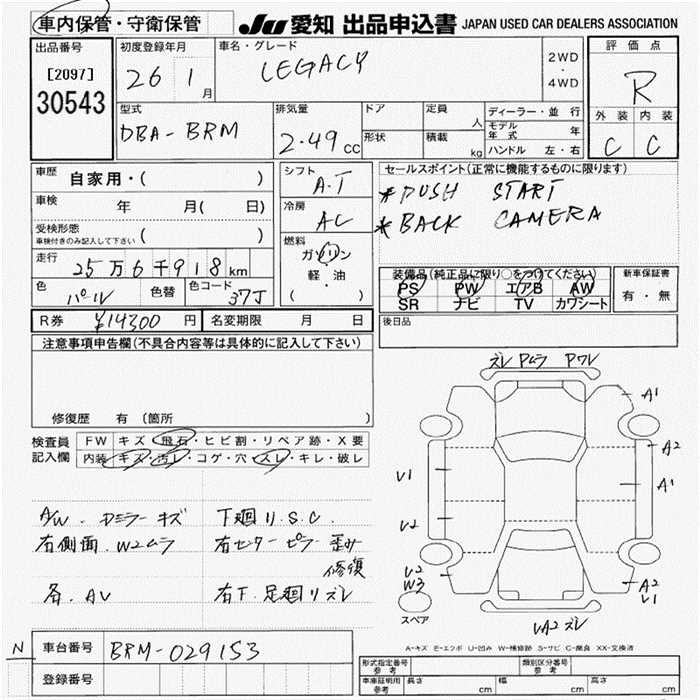 車内保管・守衛保管
JU 愛知 出品申込書 JAPAN USED CAR DEALERS ASSOCIATION
出品番号
[2097]
30543
初度登録年月
26 1 月
車名・グレード
LEGACY
2WD
・
4WD
評価点
R
外装 内装
C C
型式
DBA-BRM
排気量
2.49 cc
ドア
形状
定員 人
積載 kg
ディーラー・並行
モデル年式 年
ハンドル 左・右
車歴 自家用・( )
車検 年 月( 日)
受検形態
車検付きのみ記入して下さい ( )
走行 25万6千918 km
色 パール 色替 色コード 37J
シフト
A.T
冷房
AC
燃料
ガソリン
軽・油
( )
セールスポイント(正常に機能するものに限ります)
*PUSH START
*BACK CAMERA
装備品(純正品に限り○をつけてください)
PS PW エアB AW
SR ナビ TV カワシート
新車保証書
有・無
R券 ¥14300 円 名変期限 月 日
後日品
注意事項申告欄(不具合内容等は具体的に記入して下さい)
修復歴 有(箇所 )
検査員
記入欄
FW キズ・飛石・ヒビ割・リペア跡・X要
内装 キズ・汚レ・コゲ・穴・スレ・キレ・破レ
A/W.Dミラーキズ 下廻り.S.C.
右側面.W2ムラ 右センターピラー歪み
修復
各.AU 右下.足廻りズレ
ズレ Pムラ Pワレ
A1
A2
A1
U1
U2
U2
W3
A2
U1
UA2 ズレ
スペア
A-キズ E-エクボ U-凹み W-補修跡 S-サビ C-腐食 XX-交換済
N 車台番号 BRM-029153
登録番号
形式指定番号
参考
類別区分番号
参考
車庫証明用
参考
長さ cm 幅 cm 高さ cm